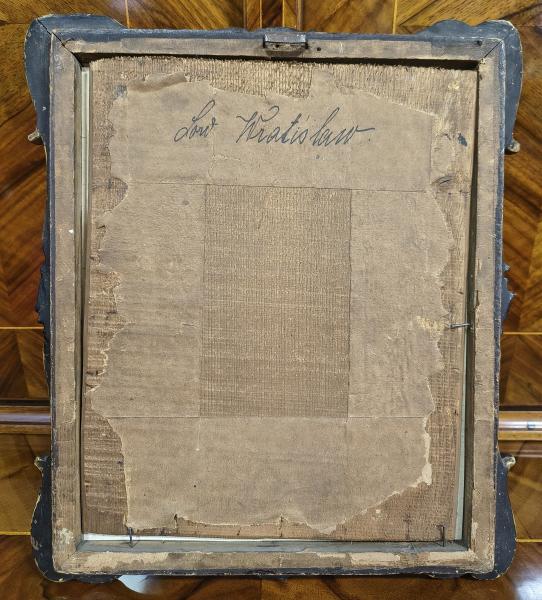 Löw Wratislaw.